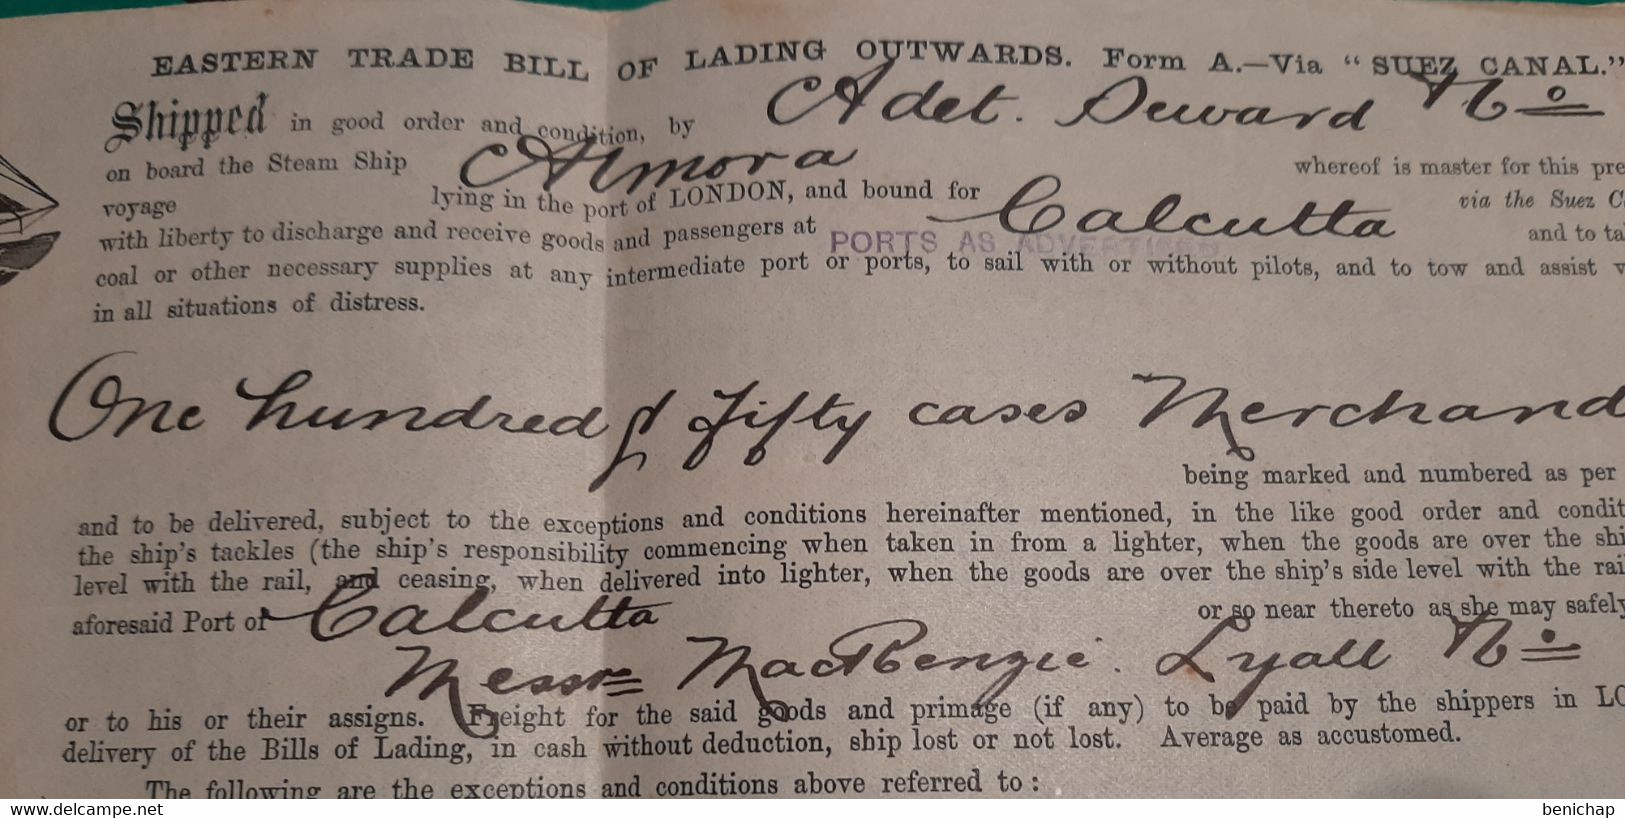 EASTERN TRADE BILL OF LADING OUTWARDS. Form A.—Via "SUEZ CANAL."
Shipped in good order and condition, by Adet. Seward & Co
on board the Steam Ship Almora whereof is master for this pre
voyage lying in the port of LONDON, and bound for Calcutta via the Suez C
with liberty to discharge and receive goods and passengers at PORTS AS ADVERTISED and to ta
coal or other necessary supplies at any intermediate port or ports, to sail with or without pilots, and to tow and assist v
in all situations of distress.
One hundred & Fifty cases Merchand
being marked and numbered as per
and to be delivered, subject to the exceptions and conditions hereinafter mentioned, in the like good order and condit
the ship's tackles (the ship's responsibility commencing when taken in from a lighter, when the goods are over the shi
level with the rail, and ceasing, when delivered into lighter, when the goods are over the ship's side level with the rai
aforesaid Port of Calcutta or so near thereto as she may safely
Messrs MacKenzie. Lyall & Co
or to his or their assigns. Freight for the said goods and primage (if any) to be paid by the shippers in LO
delivery of the Bills of Lading, in cash without deduction, ship lost or not lost. Average as accustomed.
The following are the exceptions and conditions above referred to:
www.delcampe.net benichap